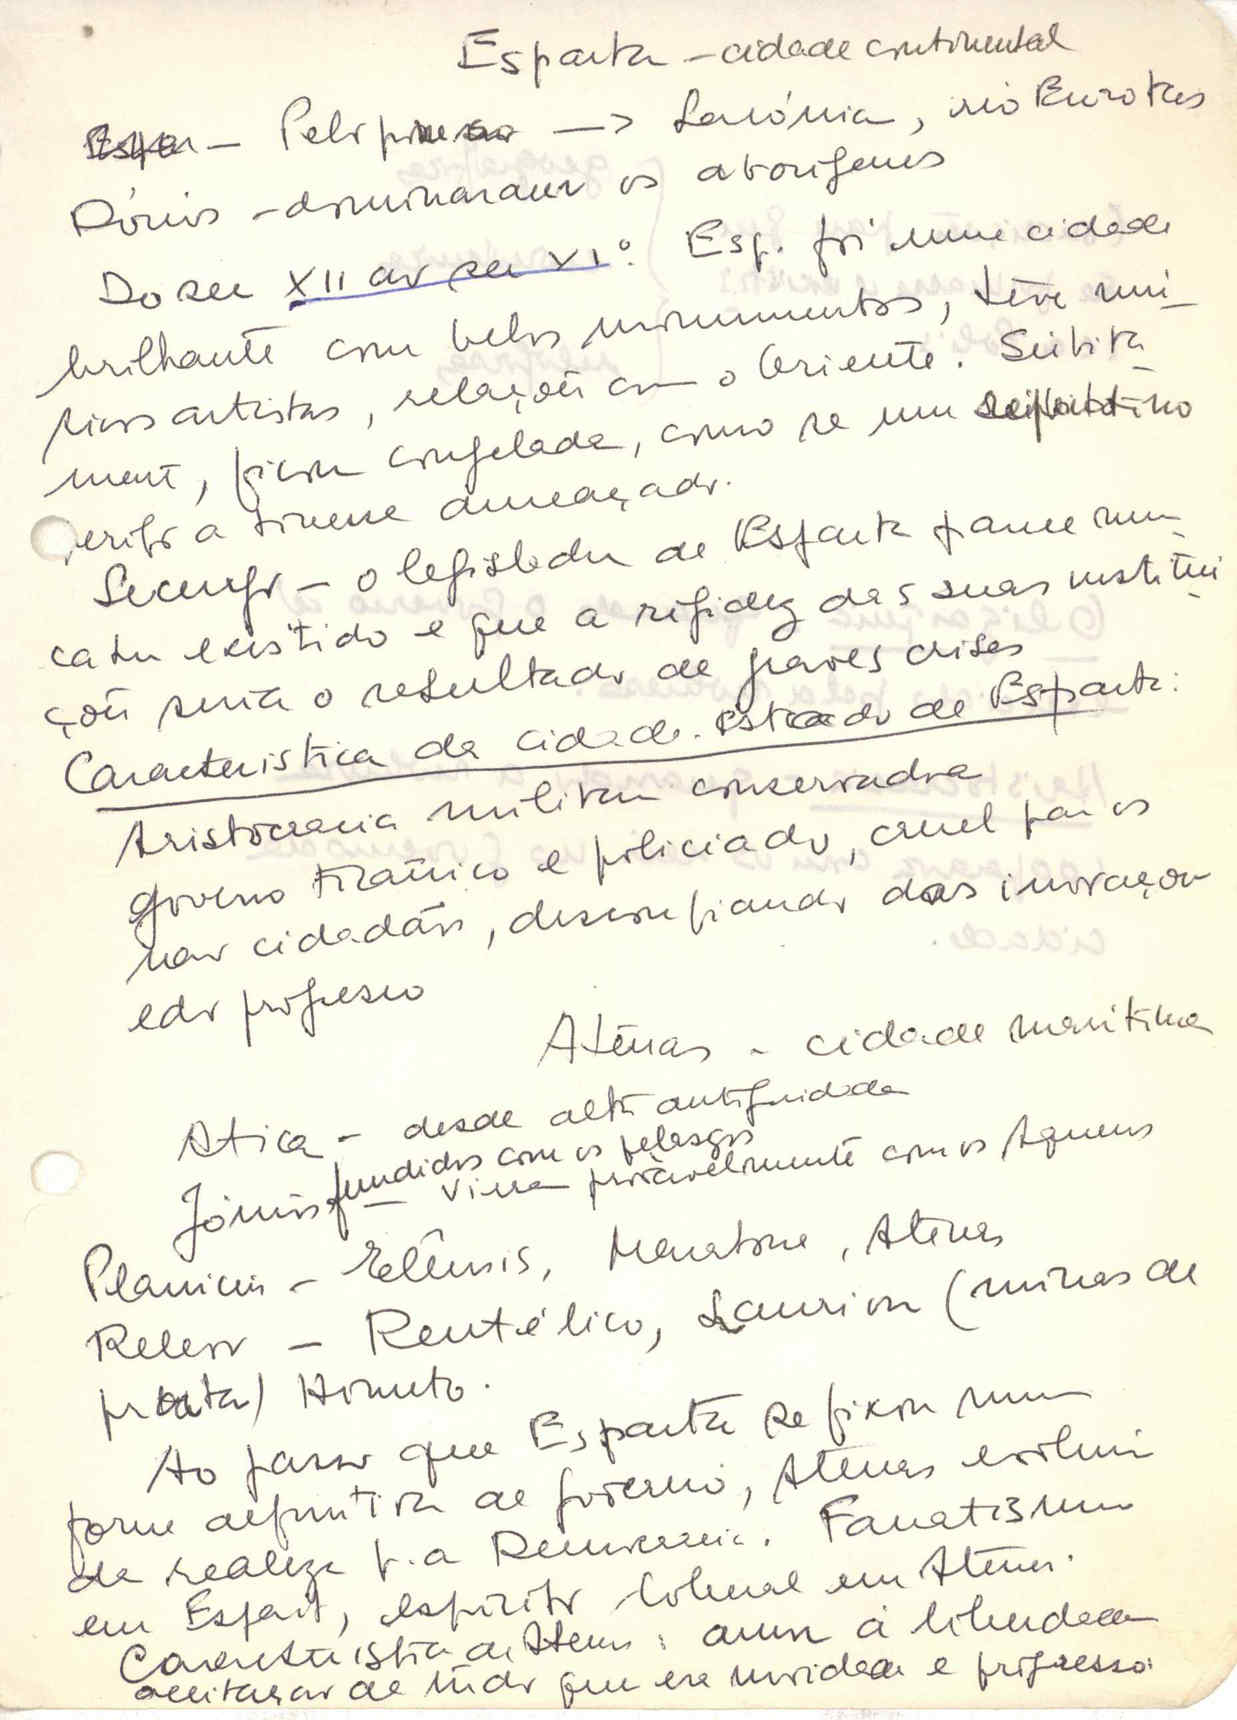 Esparta – cidade continental
Espar – Peloponeso –> Lacónia, rio Eurotas
Dórios – dominaram os aborígenes
Do sec XII ao sec VI: Esp. foi uma cidade
brilhante com belos monumentos, teve mú-
sicos artistas, relações com o Oriente. Súbita-
ment, ficou congelada, como se um repentino
perigo a tivesse ameaçado.
Licurgo – o legislador de Esparta parece nun-
ca ter existido e que a rigidez das suas institui-
ções seria o resultado de graves crises
Caracteristica da cidade. estado de Esparta:
Aristocracia militar conservadora
Governo tirânico e policiado, cruel para os
não cidadãos, desconfiando das inovações
e do progresso
Atenas – cidade maritima
Atica – desde alta antiguidade
fundidos com os pelasgos
Jónios – viera provavelmente com os Aqueus
Planicies – Elêusis, Maratona, Atenas
Relevo – Pentélico, Laurion (minas de
prata) Himeto.
Ao passo que Esparta se fixou numa
forma definitiva de governo, Atenas evolui
da realeza p. a Democracia. Fanatismo
em Espart, espírito liberal em Atenas.
Caracteristica de Atenas: amor à liberdade
aceitação de tudo que era novidade e progresso.